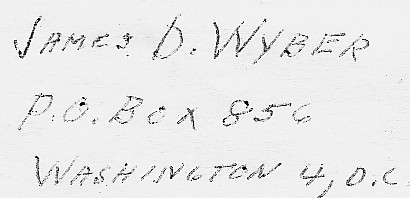 JAMES D. WYBER
P.O. BOX 856
WASHINGTON 4, D.C.